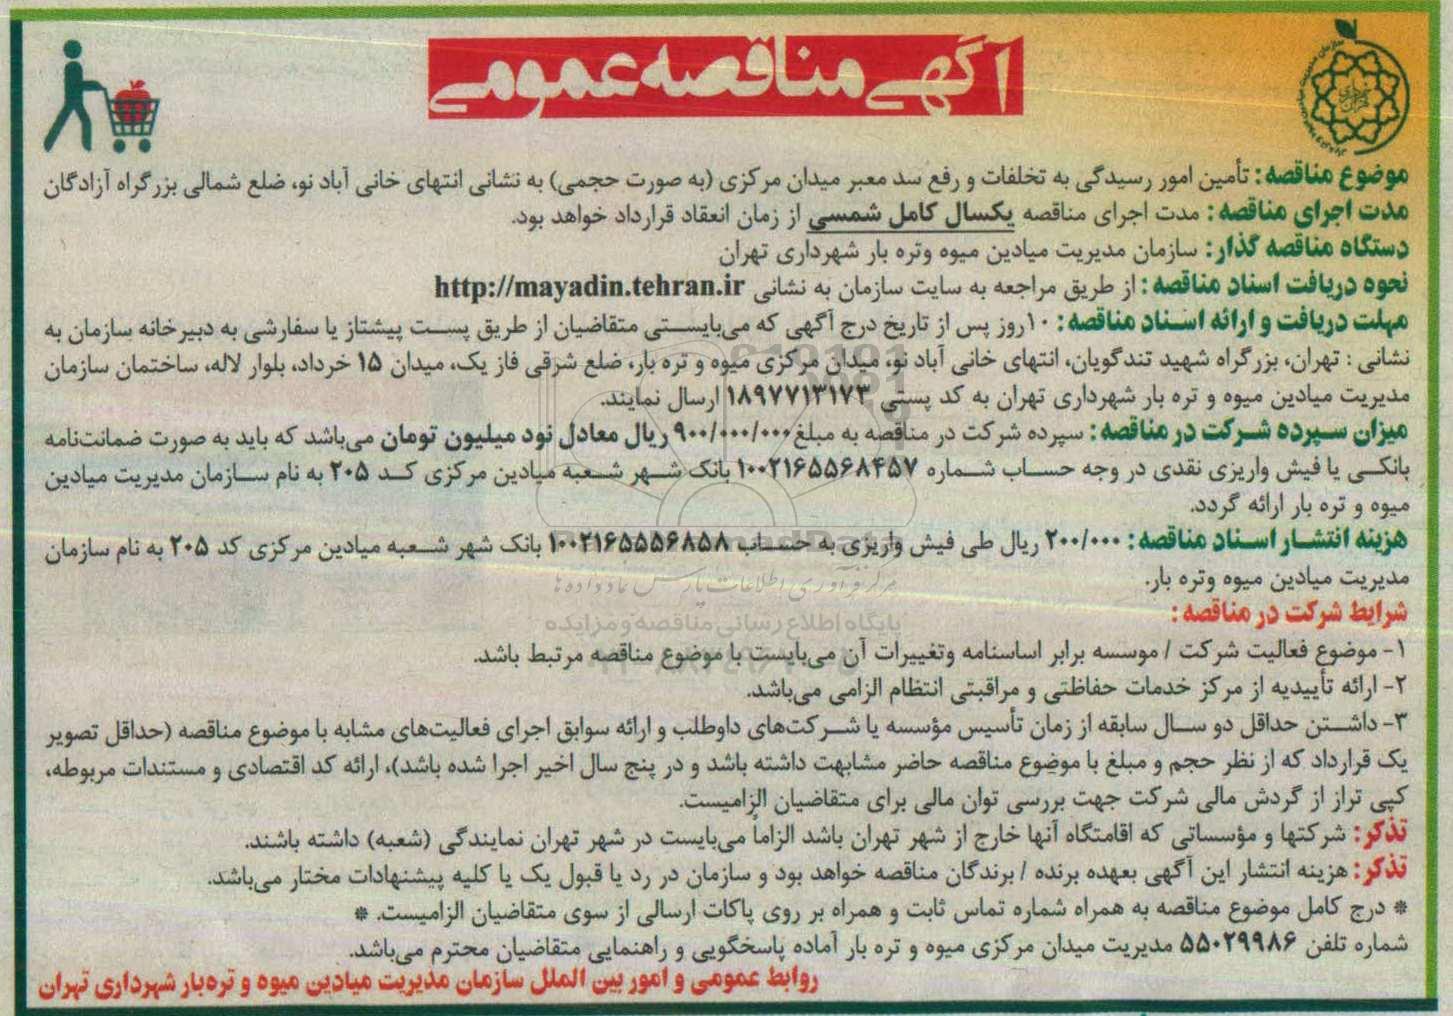 آگهی مناقصه عمومی
موضوع مناقصه: تأمین امور رسیدگی به تخلفات و رفع سد معبر میدان مرکزی (به صورت حجمی) به نشانی انتهای خانی آباد نو، ضلع شمالی بزرگراه آزادگان
مدت اجرای مناقصه: مدت اجرای مناقصه یکسال کامل شمسی از زمان انعقاد قرارداد خواهد بود.
دستگاه مناقصه گذار: سازمان مدیریت میادین میوه وتره بار شهرداری تهران
نحوه دریافت اسناد مناقصه: از طریق مراجعه به سایت سازمان به نشانی http://mayadin.tehran.ir
مهلت دریافت و ارائه اسناد مناقصه: ۱۰روز پس از تاریخ درج آگهی که می‌بایستی متقاضیان از طریق پست پیشتاز یا سفارشی به دبیرخانه سازمان به
نشانی : تهران، بزرگراه شهید تندگویان، انتهای خانی آباد نو، میدان مرکزی میوه و تره بار، ضلع شرقی فاز یک، میدان ۱۵ خرداد، بلوار لاله، ساختمان سازمان
مدیریت میادین میوه و تره بار شهرداری تهران به کد پستی ۱۸۹۷۷۱۳۱۷۳ ارسال نمایند.
میزان سپرده شرکت در مناقصه: سپرده شرکت در مناقصه به مبلغ۹۰۰/۰۰۰/۰۰۰ ریال معادل نود میلیون تومان می‌باشد که باید به صورت ضمانت‌نامه
بانکی یا فیش واریزی نقدی در وجه حساب شماره ۱۰۰۲۱۶۵۵۶۸۴۵۷ بانک شهر شعبه میادین مرکزی کد ۲۰۵ به نام سازمان مدیریت میادین
میوه و تره بار ارائه گردد.
هزینه انتشار اسناد مناقصه: ۲۰۰/۰۰۰ ریال طی فیش واریزی به حساب ۱۰۰۲۱۶۵۵۵۶۸۵۸ بانک شهر شعبه میادین مرکزی کد ۲۰۵ به نام سازمان
مدیریت میادین میوه وتره بار.
شرایط شرکت در مناقصه:
۱- موضوع فعالیت شرکت / موسسه برابر اساسنامه وتغییرات آن می‌بایست با موضوع مناقصه مرتبط باشد.
۲- ارائه تأییدیه از مرکز خدمات حفاظتی و مراقبتی انتظام الزامی می‌باشد.
۳- داشتن حداقل دو سال سابقه از زمان تأسیس مؤسسه یا شرکت‌های داوطلب و ارائه سوابق اجرای فعالیت‌های مشابه با موضوع مناقصه (حداقل تصویر
یک قرارداد که از نظر حجم و مبلغ با موضوع مناقصه حاضر مشابهت داشته باشد و در پنج سال اخیر اجرا شده باشد)، ارائه کد اقتصادی و مستندات مربوطه،
کپی تراز از گردش مالی شرکت جهت بررسی توان مالی برای متقاضیان الزامیست.
تذکر: شرکتها و مؤسساتی که اقامتگاه آنها خارج از شهر تهران باشد الزاماً می‌بایست در شهر تهران نمایندگی (شعبه) داشته باشند.
تذکر: هزینه انتشار این آگهی بعهده برنده / برندگان مناقصه خواهد بود و سازمان در رد یا قبول یک یا کلیه پیشنهادات مختار می‌باشد.
* درج کامل موضوع مناقصه به همراه شماره تماس ثابت و همراه بر روی پاکات ارسالی از سوی متقاضیان الزامیست. *
شماره تلفن ۵۵۰۲۹۹۸۶ مدیریت میدان مرکزی میوه و تره بار آماده پاسخگویی و راهنمایی متقاضیان محترم می‌باشد.
روابط عمومی و امور بین الملل سازمان مدیریت میادین میوه و تره‌بار شهرداری تهران
مرکز فرآوری اطلاعات پارس نماد داده ها
پایگاه اطلاع رسانی مناقصه و مزایده